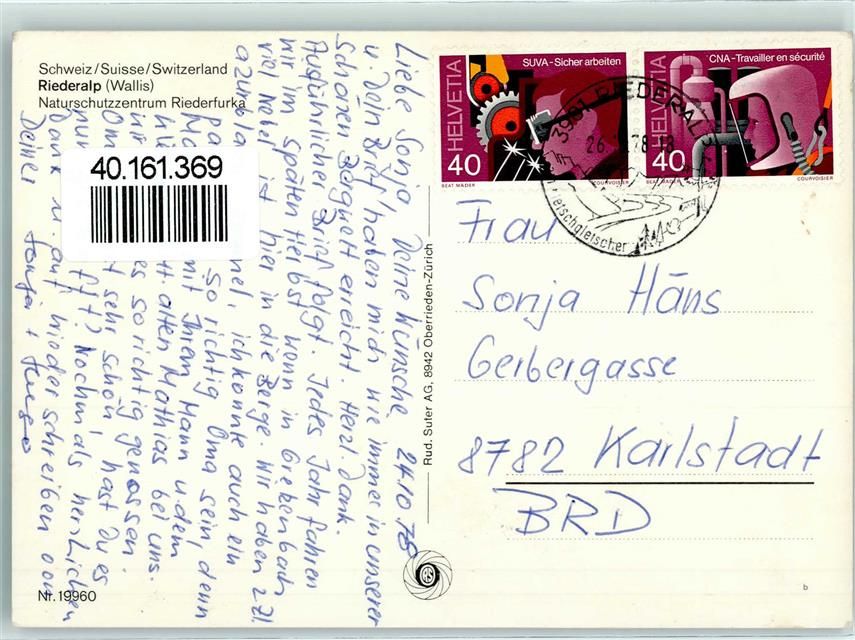 Schweiz/Suisse/Switzerland
Riederalp (Wallis)
Naturschutzzentrum Riederfurka
40.161.369
Liebe Sonja Deine Wünsche 24.10.78
u. Dein Brief haben mich wie immer in unserer
schönen Bergwelt erreicht. Herzl. Dank.
Ausführlicher Brief folgt. Jedes Jahr fahren
wir im späten Herbst, wenn in
viel Nebel ist hier in die Berge. Wir haben z.Zt.
ich konnte auch ein
so richtig Oma sein, denn
mit Ihrem Mann u. dem
alten Mathias bei uns.
es so richtig genossen.
sehr schön, hast Du es
Nochmals herzlichen
Dank u. auf wieder schreiben
Deine
Nr. 19960
Rud. Suter AG, 8942 Oberrieden-Zürich
HELVETIA
SUVA-Sicher arbeiten
40
BEAT MÄDER
COURVOISIER
HELVETIA
CNA-Travailler en sécurité
40
BEAT MÄDER
COURVOISIER
3981 RIEDERALP
26. 78-18
Aletschgletscher
Frau
Sonja Häns
Gerbergasse
8782 Karlstadt
BRD
b